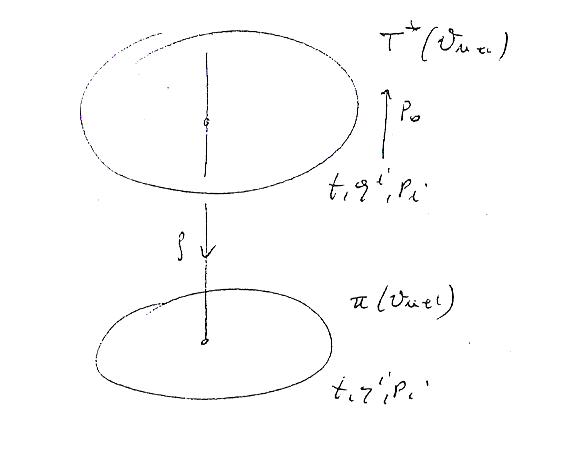 T*(𝒱ₙ₊₁)
p₀
t, qⁱ, pᵢ
ρ
π(𝒱ₙ₊₁)
t, qⁱ, pᵢ